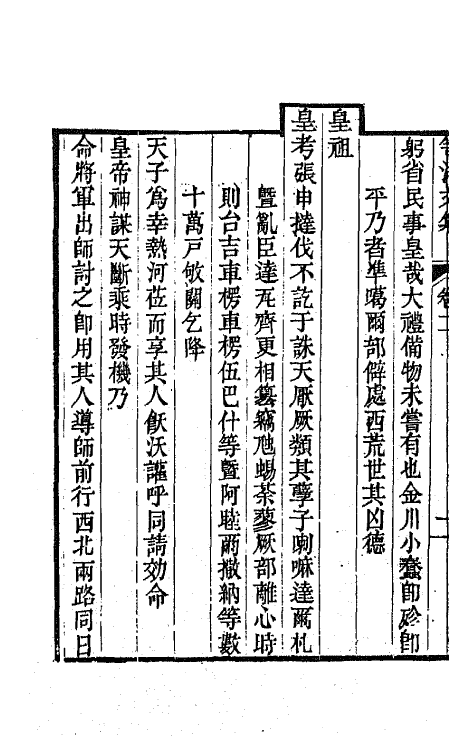 躬省民事皇哉大禮備物未嘗有也金川小蠢卽殄卽
平乃者準噶爾部僻處西荒世其凶德
皇祖
皇考張申撻伐不訖于誅天厭厥類其孽子喇嘛達爾札
暨亂臣達瓦齊更相簒竊虺蜴荼蓼厥部離心時
則台吉車楞車楞伍巴什等暨阿睦爾撒納等數
十萬戸敂關乞降
天子爲幸熱河莅而享其人飫沃讙呼同請効命
皇帝神謀天斷乘時發機乃
命將軍出師討之卽用其人導師前行西北兩路同日